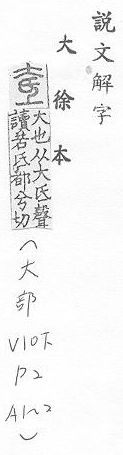 說文解字
大徐本
奃
大也从大氐聲
讀若氐都兮切
(大部
V10下
P2
A1n2)